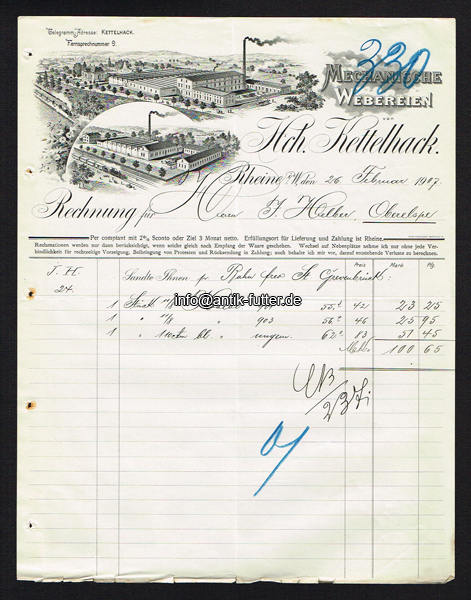 Telegramm-Adresse: KETTELHACK.
Fernsprechnummer 9.
330
MECHANISCHE
WEBEREIEN
von
Hch. Kettelhack.
Rheine i/W. den 26. Februar 1907.
Rechnung für Herrn J. Hülber, Oberelspe
Per comptant mit 2% Sconto oder Ziel 3 Monat netto. Erfüllungsort für Lieferung und Zahlung ist Rheine.
Reclamationen werden nur dann berücksichtigt, wenn solche gleich nach Empfang der Waare geschehen. Wechsel auf Nebenplätze nehme ich nur ohne jede Ver-
bindlichkeit für rechtzeitige Vorzeigung, Beibringung von Protesten und Rücksendung in Zahlung; auch behalte ich mir vor, darauf entstehende Verluste zu berechnen.
Preis Mark Pfg.
J. H. Sandte Ihnen pr Bahn frco St. Grevenbrück:
24. 1 Stück 55. 42 23 25
info@antik-futter.de
1 " 903 56. 46 25 95
1 62. 83 51 45
Mark 100 65